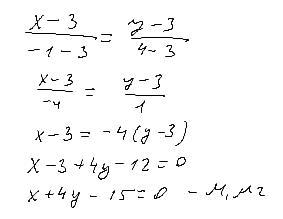 x-3/-1-3 = y-3/4-3
x-3/-4 = y-3/1
x-3 = -4(y-3)
x-3+4y-12=0
x+4y-15=0 - M₁M₂